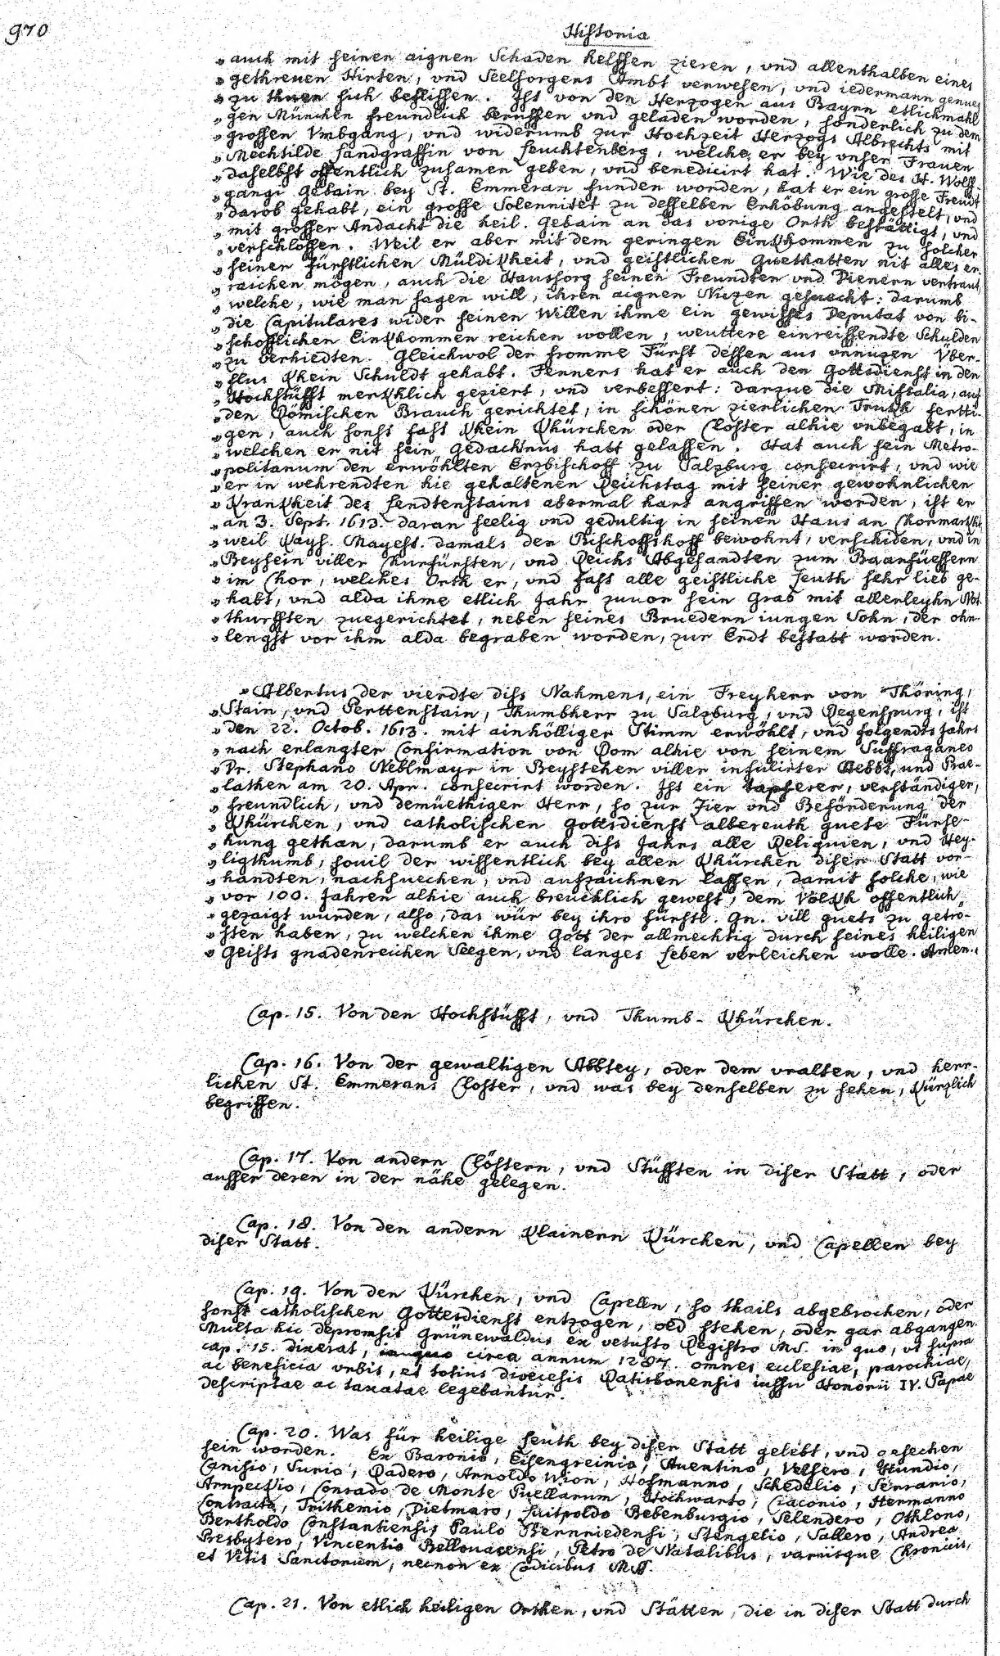 970
Historia
» auch mit seinen aignen Schaden helffen zieren, vnd allenthalben eines
» gethreuen Hirten, vnd Seelsorgens Ambt verwesen, vnd iedermann genueg
» zu thuen sich beflissen. Ist von den Herzogen aus Bayrn etlichmahl
» gen München freundlich berueffen vnd geladen worden, sonderlich zu dem
» grossen Vmbgang, vnd widerumb zur Hochzeit Herzogs Albrechts mit
» Mechtilde Landgraffin von Leuchtenberg, welche er bey vnser Frauen
» daselbst offentlich zusamen geben, vnd benedicirt hat. Wie des H. Wolff-
» gangi Gebain bey St. Emmeran funden worden, hat er ein grosse Freudt
» darob gehabt, ein grosse Solennitet zu desselben Erhöbung angestelt, vnd
» mit grosser Andacht die heil. Gebain an das vorige Orth bestättigt, vnd
» verschlossen. Weil er aber mit dem geringen Einkhommen zu solcher
» seiner Fürstlichen Müldikheit, vnd geistlichen Guethatten nit alles er-
» raichen mögen, auch die Haussorg seinen Freundten vnd Dienern vertraut,
» welche, wie man sagen will, ihren aignen Nuzen gesuecht: darumb
» die Capitulares wider seinen Willen ihme ein gewisses Deputat von bi-
» schofflichen Einkhommen reichen wollen, weuttere einreissendte Schulden
» zu verhiedten. Gleichwol der fromme Fürst dessen aus vnnuzen Über-
» flus khein Schuldt gehabt. Ferners hat er auch den Gottsdienst in den
» Hochstüfft merkhlich geziert, vnd verbessert: darzue die Missalia, auf
» den Römischen Brauch gerichtet, in schönen zierlichen Truckh fertti-
» gen, auch sonst fast khein Khürchen oder Closter alhie vnbegabt, in
» welchen er nit sein Gedachtnus hatt gelassen. Hat auch sein Metro-
» politanum den erwöhlten Erzbischoff zu Salzburg consecrirt, vnd wie
» er in wehrendten hie gehaltenen Reichstag mit seiner gewohnlichen
» Krankheit des Lendtenstains abermal hart angriffen worden, ist er
» an 3. Sept. 1613. daran seelig vnd gedultig in seinen Haus an Chormarkht,
» weil Kays. Mayest. damals den Bischoffshoff bewohnt, verschiden, vnd in
» Beysein viller Churfürsten, vnd Reichs Abgesandten zum Baarfüessern
» im Chor, welches Orth er, vnd fast alle geistliche Leuth sehr lieb ge-
» habt, vnd alda ihme etlich Jahr zuvor sein Grab mit allerleyhn Not-
» thurfften zuegerichtet, neben seines Bruedern iungen Sohn, der ohn-
» lengst vor ihm alda begraben worden, zur Erdt bestatt worden.
» Albertus der vierdte diss Nahmens, ein Freyherr von Thöring,
» Stain, vnd Perttenstain, Thumbherr zu Salzburg, vnd Regenspurg, ist
» den 22. Octob. 1613. mit ainhölliger Stimm erwöhlt, vnd folgendts Jahrs
» nach erlangter Confirmation von Rom alhie von seinem Suffraganeo
» Dr. Stephano Neblmayr in Beystehen viller infulirter Aebbt, vnd Prae-
» lathen am 20. Apr. consecrirt worden. Ist ein tapferer, verständiger,
» freundlich, vnd demüethiger Herr, so zur Zier vnd Beförderung der
» Khürchen, vnd catholischen Gottsdienst albereuth guete Fürse-
» hung gethan, darumb er auch diss Jahrs alle Reliquien, vnd Hey-
» ligthumb, souil der wissentlich bey allen Khürchen diser Statt vor-
» handten, nachsuechen, vnd aufzaichnen lassen, damit solche, wie
» vor 100. Jahren alhie auch breuchlich gewest, dem Völckh offentlich
» gezaigt wurden, also, das wür bey ihro fürstl. Gn. vill guets zu getrö-
» sten haben, zu welchen ihme Gott der allmechtig durch seines heiligen
» Geists gnadenreichen Seegen, vnd langes Leben verleichen wolle. Amen.
Cap. 15. Von den Hochstüfft, vnd Thumb-Khürchen.
Cap. 16. Von der gewaltigen Abbtey, oder dem vralten, vnd herr-
lichen St. Emmerans Closter, vnd was bey denselben zu sehen, Kürzlich
begriffen.
Cap. 17. Von andern Clöstern, vnd Stüfften in diser Statt, oder
ausser deren in der nähe gelegen.
Cap. 18. Von den andern Klainern Kürchen, vnd Capellen bey
diser Statt.
Cap. 19. Von den Kürchen, vnd Capelln, so thails abgebrochen, oder
sonst catholischen Gottesdienst entzogen, oed stehen, oder gar abgangen
Multa hic depromsit Grünewaldus ex vetusto Registro MS. in quo, vt supra
cap. 15. dixerat, circa annum 1287. omnes ecclesiae, parochiae,
ac beneficia vrbis, et totius dioecesis Ratisbonensis iussu Honorii IV. Papae
descriptae ac taxatae legebantur.
Cap. 20. Was für heilige Leuth bey diser Statt gelebt, vnd gesechen
sein worden. Ex Baronio, Eisengreinio, Auentino, Velsero, Hundio,
Canisio, Surio, Radero, Arnoldo Wion, Hofmanno, Schedelio, Ferrario,
Arnpeckio, Conrado de Monte Puellarum, Hochwarto, Ciaconio, Hermanno
Contracto, Trithemio, Dietmaro, Luitpoldo Bebenburgio, Selendero, Othlono,
Bertholdo Constantiensi, Paulo Bernriedensi, Stengelio, Sallero, Andrea
Presbytero, Vincentio Bellouacensi, Petro de Natalibus, variisque Chronicis,
et Vitis Sanctorum, necnon ex Codicibus MSS.
Cap. 21. Von etlich heiligen Orthen, vnd Stätten, die in diser Statt durch